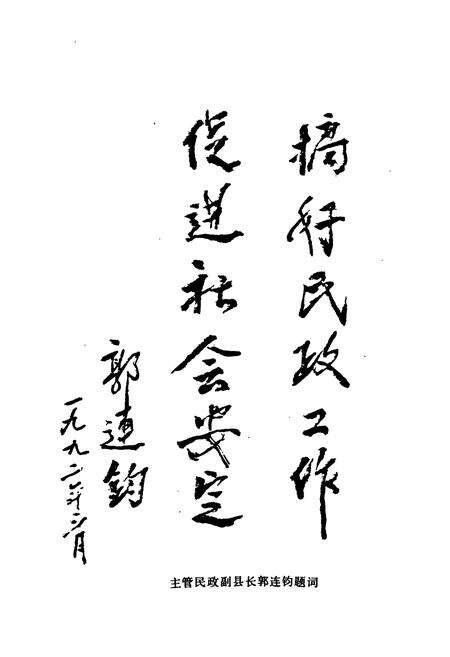 搞好民政工作
促进社会安定
郭连钧
一九九二年二月
主管民政副县长郭连钧题词